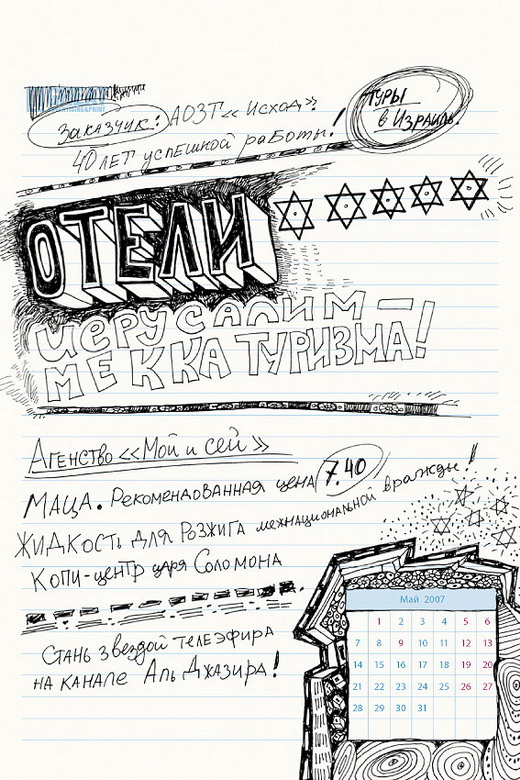 Заказчик: АОЗТ «Исход»
40 лет успешной работы!
Туры
в Израиль.
ОТЕЛИ
Иерусалим –
Мекка туризма!
Агенство «Мой и сей»
Маца. Рекомендованная цена 7.40
Жидкость для розжига межнациональной вражды!
Копи-центр царя Соломона
Стань звездой телеэфира
на канале Аль Джазира!
Май 2007
1 2 3 4 5 6
7 8 9 10 11 12 13
14 15 16 17 18 19 20
21 22 23 24 25 26 27
28 29 30 31